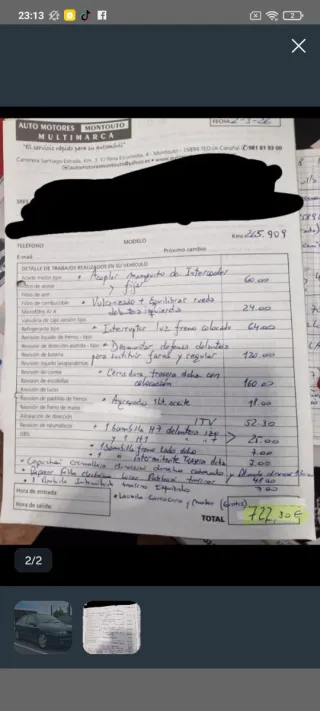 23:13
2
AUTO MOTORES MONTOUTO
MULTIMARCA
"El servicio rápido para su automóvil"
Carretera Santiago-Estrada, Km. 2
TEO (A Coruña)
981 81 93 00
FECHA
TELÉFONO MODELO Kms 265.909
E-mail Próximo cambio
DETALLE DE TRABAJOS REALIZADOS EN SU VEHÍCULO
Aceite motor tipo • Acoplar Manguito de Intercooler 60.00
Filtro de aceite y fijar
Filtro de aire
Filtro de combustible • Vulcanizado + Equilibrar rueda 24.00
Microfiltro A/A delantera izquierda
Valvulina de caja versión tipo
Refrigerante tipo • Interruptor luz freno colocado 64.00
Revisión líquido de frenos - tipo
Revisión de dirección asistida - tipo • Desmontar defensa delantera
Revisión de batería para sustituir faros y regular 120.00
Revisión líquido lavaparabrisas
Revisión de correa • Cerradura trasera dcha con
Revisión de escobillas colocación 160.00
Revisión de luces
Revisión de pastillas de frenos • Agregado 1Lt aceite 18.00
Revisión de freno de mano
Alineación de dirección ITV 52.30
Revisión de neumáticos • 1 bombilla H7 delantera izq
y 1 H1 25.00
• 1 bombilla freno lado dcho 7.00
• 1 " intermitente trasera dcha 7.00
• Capuchon cremallera direccion
• Reparar fallo electrico luces traseras
• 1 bombilla Intermitente trasero Izquierdo 7.00
Hora de entrada:
Hora de salida:
• Lavado Carroceria y motor (Gratis)
TOTAL 722,30€
2/2